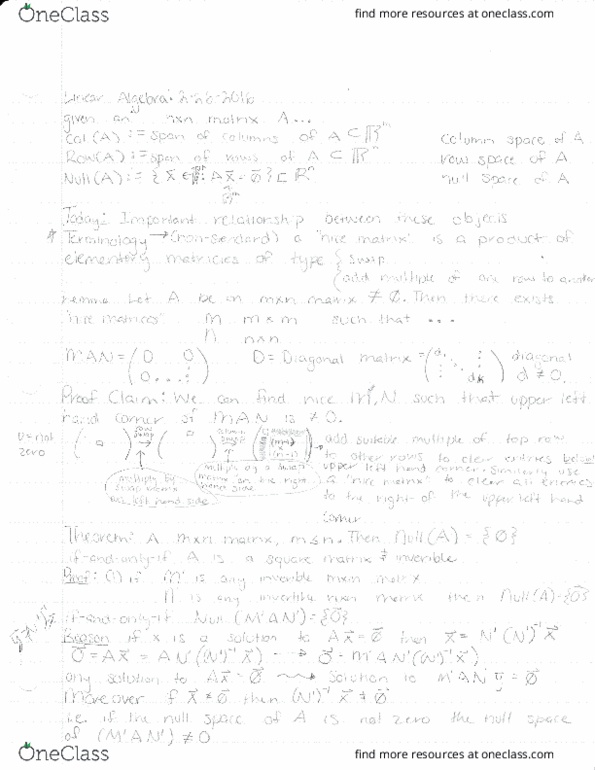 OneClass
find more resources at oneclass.com
Linear Algebra: 2-26-2016
given an mxn matrix A...
Col(A) := span of columns of A ⊂ ℝᵐ column space of A
Row(A) := span of rows of A ⊂ ℝⁿ row space of A
Null(A) := { x⃗ ∈ ℝⁿ : Ax⃗ = 0⃗ } ⊆ ℝⁿ null space of A
Today: Important relationship between these objects
* Terminology → (non-standard) a "nice matrix" is a product of
elementery matricies of type { swap
{ add multiple of one row to another
Let A be an mxn matrix ≠ 0. Then there exists
"nice matrices" M mxm such that ...
N nxn
MAN = ( D 0
0 ... ) D = Diagonal matrix = ( d₁ ... dk ) diagonal
d ≠ 0.
Proof Claim: We can find nice M, N such that upper left
hand corner of MAN is ≠ 0.
0 = not
zero
row
swap
add suitable multiple of top row
to other rows to clear entries below
upper left hand corner. Similarly use
a "nice matrix" to clear all entries
to the right of the upper left hand
corner
multiply by
swap matrix
left hand side
Theorem: A mxn matrix, m≤n. Then Null(A) = {0⃗}
if-and-only-if A is a square matrix & inverible
Proof: (1) if M' is any inverible mxm matrix
N' is any invertible nxn matrix then Null(A) = {0⃗}
if-and-only-if Null(M'AN') = {0⃗}
Reason if x is a solution to Ax⃗ = 0⃗ then x⃗ = N'(N')⁻¹x⃗
0⃗ = Ax⃗ = AN'(N')⁻¹x⃗) → 0⃗ = M'AN'(N')⁻¹x⃗)
any solution to Ax⃗ = 0⃗ ⟿ Solution to M'AN'y⃗ = 0⃗
Moreover if x⃗ ≠ 0⃗ then (N')⁻¹x⃗ ≠ 0⃗
i.e. if the null space of A is not zero the null space
of (M'AN') ≠ 0
OneClass
find more resources at oneclass.com